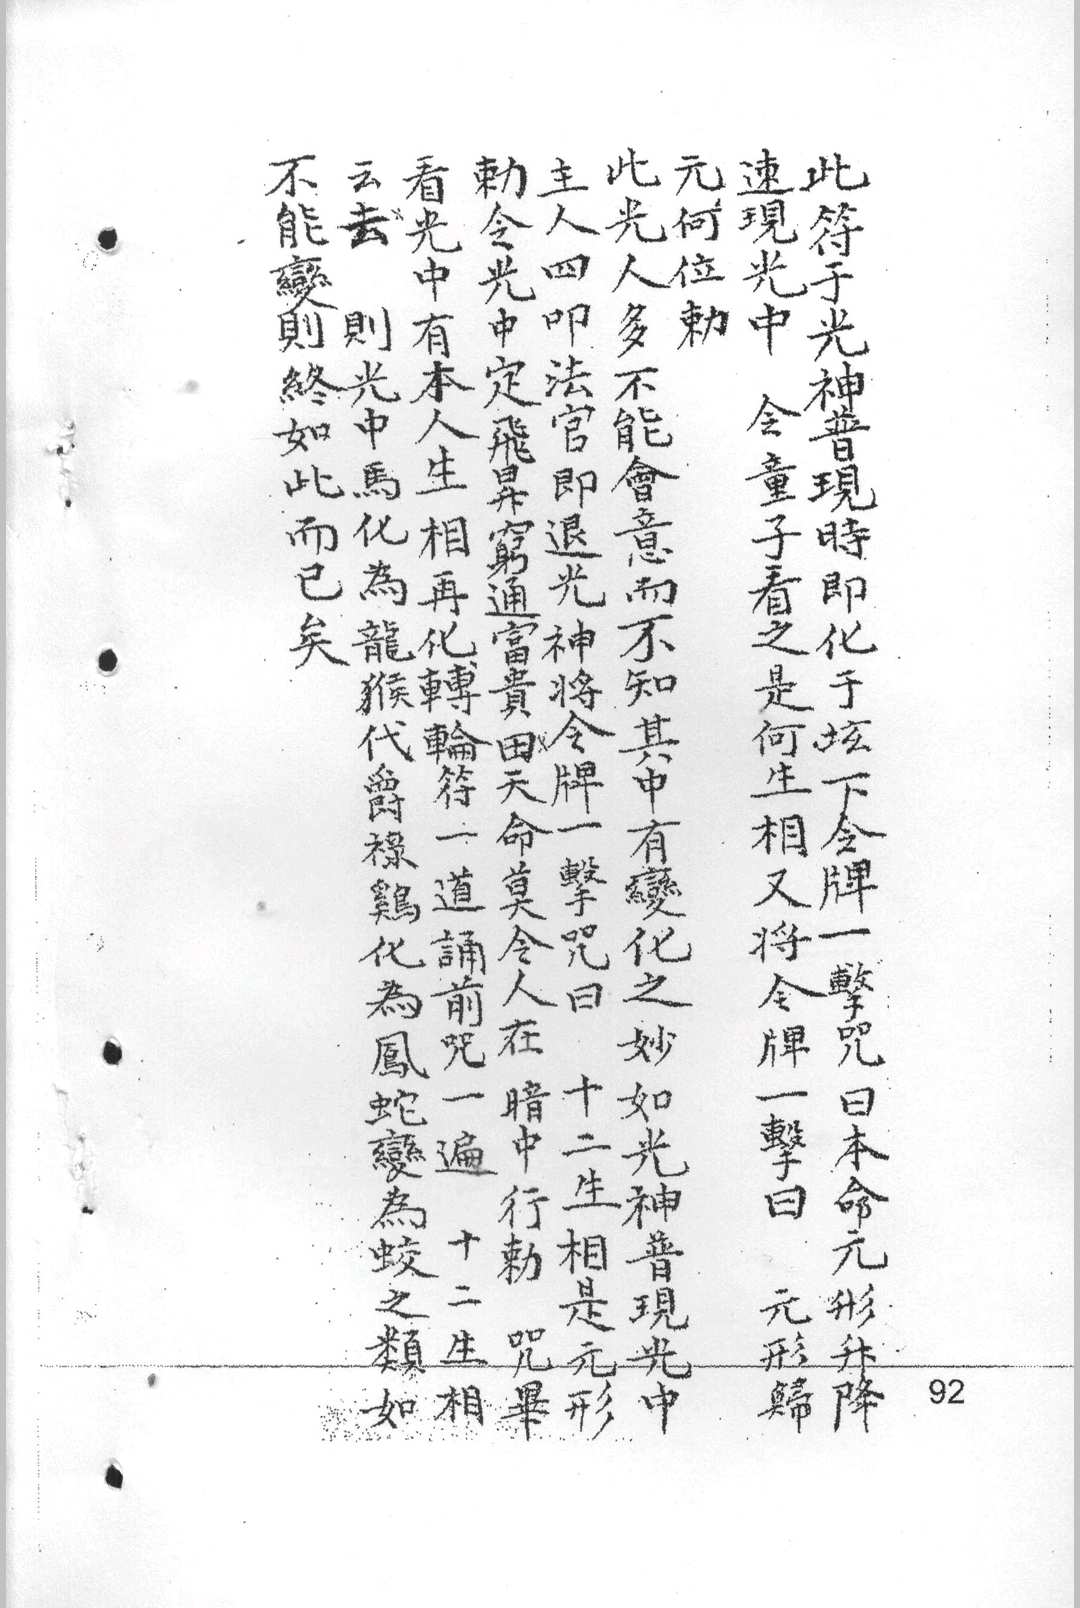 此符于光神普現時即化于坛下令牌一擊咒曰本命元形升降
速現光中　令童子看之是何生相又将令牌一擊曰　元形歸
元何位勅
此光人多不能會意而不知其中有變化之妙如光神普現光中
主人四叩法官即退光神将令牌一擊咒曰　十二生相是元形
勅令光中定飛昇窮通富貴田天命莫令人在暗中行勅　咒畢
看光中有本人生相再化轉輪符一道誦前咒一遍　十二生相
云去　則光中馬化為龍猴代爵祿鷄化為鳳蛇變為蛟之類如
不能變則終如此而已矣
92